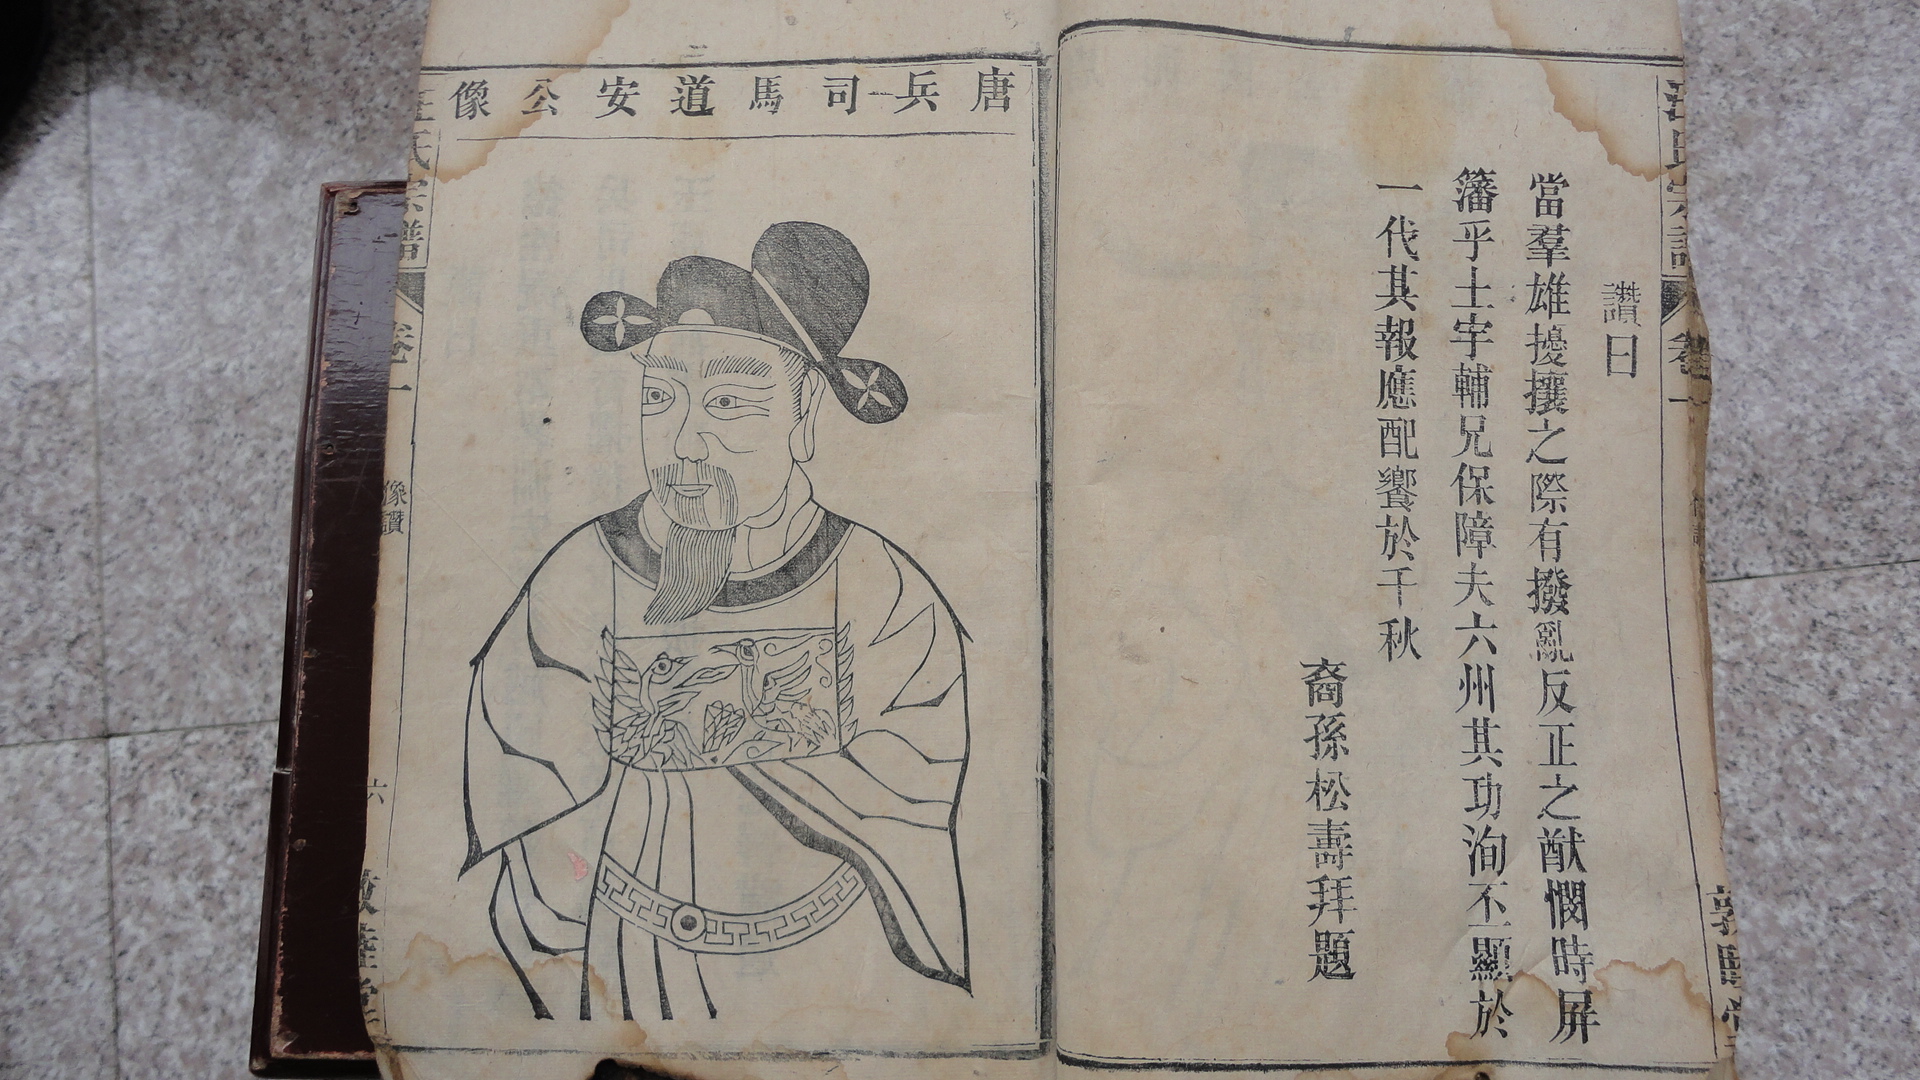 讚曰
當羣雄擾攘之際有撥亂反正之猷憫時屏
籓乎土宇輔兄保障夫六州其功洵不顯於
一代其報應配饗於千秋
裔孫松壽拜題
唐兵司馬道安公像
汪氏宗譜
卷一
像讚
六
敦睦堂